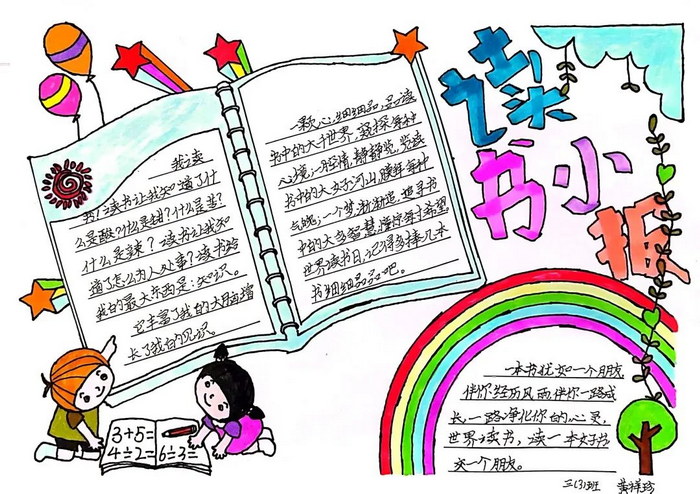 读书小报
我读
我读书让我知道了什
么是酸?什么是甜?什么是苦?
什么是辣?读书让我知
道了怎么为人处事?读书给
我的最大东西是:知识。
它丰富了我的大脑增
长了我的见识。
一颗心,细细品,品读
书中的大千世界,窥探每种
心境;一段情,静静览,览读
书中的大好河山,
气魄;一个梦,渐渐造,追寻书
中的大多智慧,撑浮每寸希望
世界读书日,记得多捧几本
书细细品品吧。
一本书犹如一个朋友
伴你经历风雨,伴你一路成
长,一路净化你的心灵,
世界读书,读一本好书
交一个朋友。
3+5=
4÷2=
6÷3=
三(3)班 黄祥珍